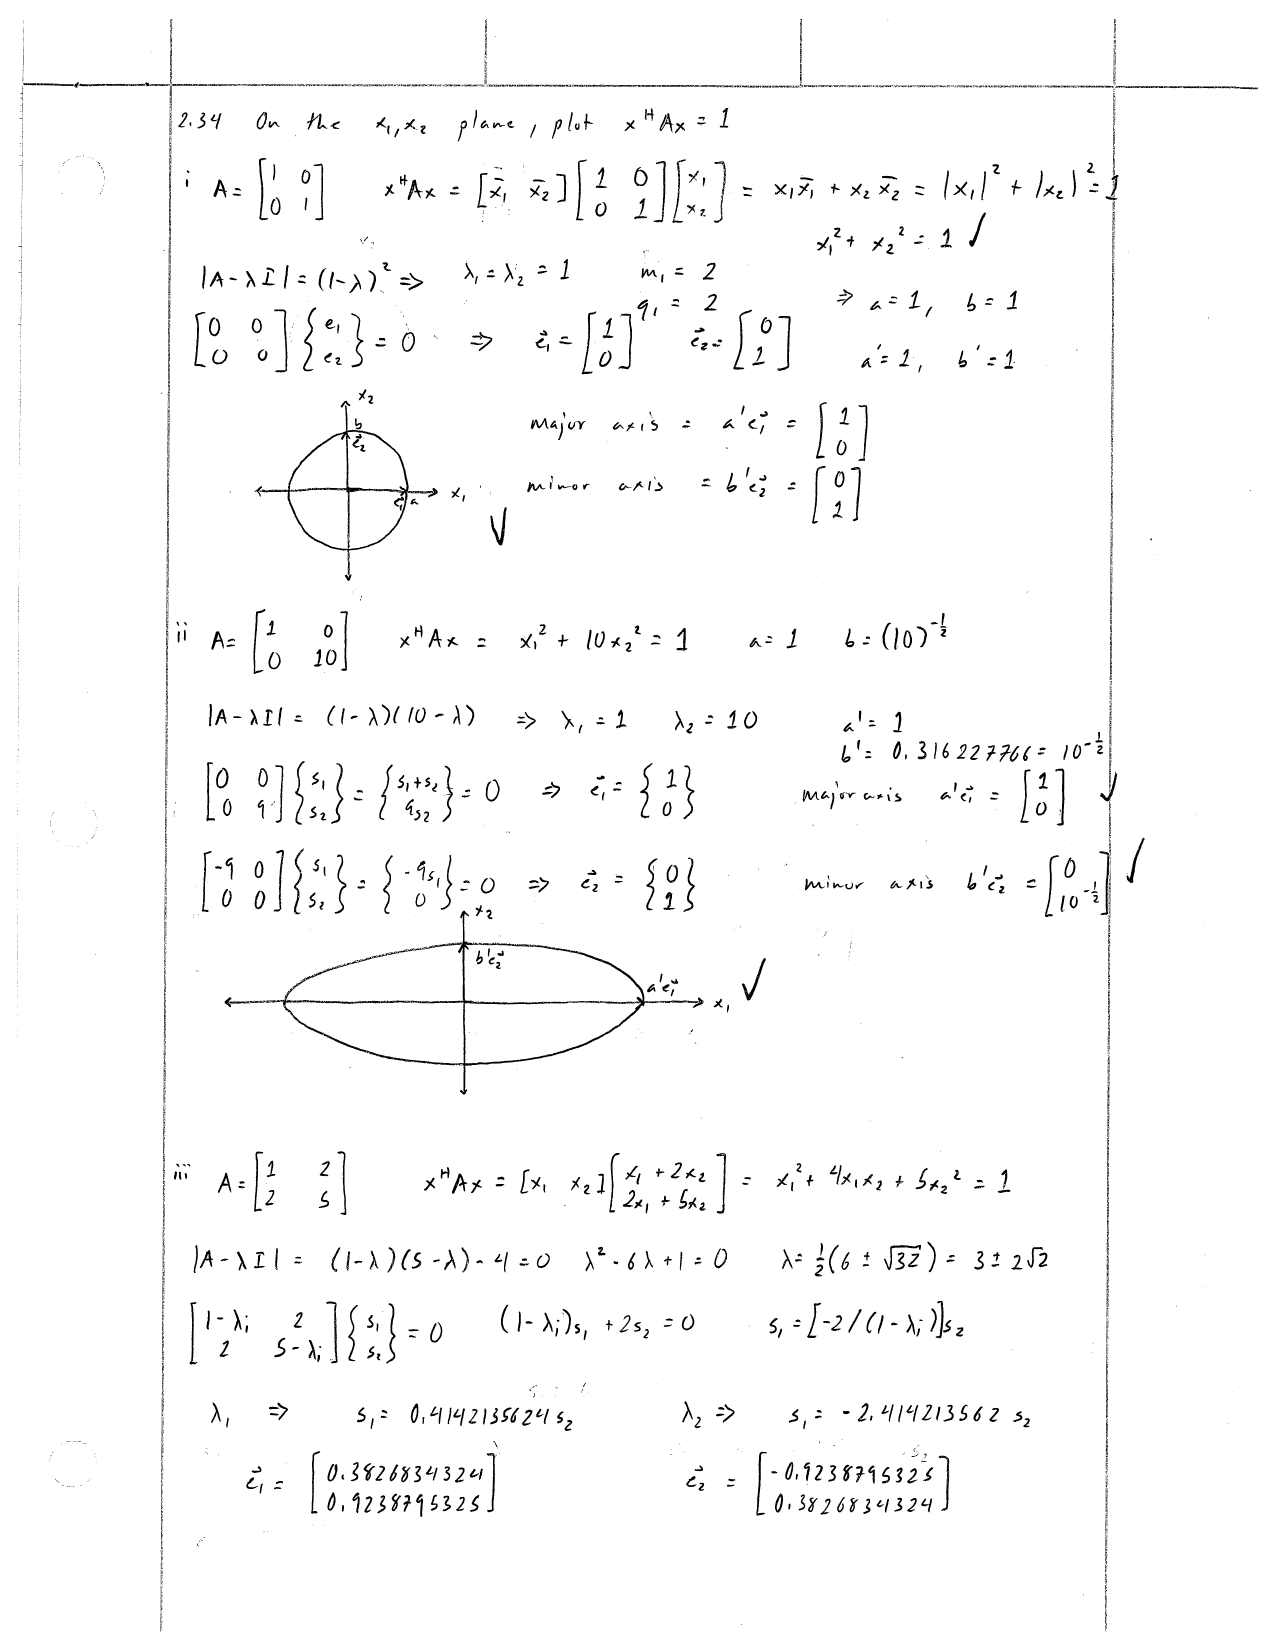 2.34 On the x₁,x₂ plane, plot xᴴAx = 1
i A = [1 0; 0 1] xᴴAx = [x̄₁ x̄₂][1 0; 0 1][x₁; x₂] = x₁x̄₁ + x₂x̄₂ = |x₁|² + |x₂|² = 1
x₁² + x₂² = 1 ✓
|A-λI| = (1-λ)² ⇒ λ₁ = λ₂ = 1 m₁ = 2
q₁ = 2 ⇒ a = 1, b = 1
[0 0; 0 0]{e₁; e₂} = 0 ⇒ e⃗₁ = [1; 0] e⃗₂ = [0; 1] a' = 1, b' = 1
x₂
b
e⃗₂
major axis = a'e⃗₁ = [1; 0]
e⃗₁ a x₁
minor axis = b'e⃗₂ = [0; 1]
✓
ii A = [1 0; 0 10] xᴴAx = x₁² + 10x₂² = 1 a = 1 b = (10)^-½
|A-λI| = (1-λ)(10-λ) ⇒ λ₁ = 1 λ₂ = 10 a' = 1
b' = 0.316227766 = 10^-½
[0 0; 0 9]{s₁; s₂} = {s₁+s₂; 9s₂} = 0 ⇒ e⃗₁ = {1; 0} major axis a'e⃗₁ = [1; 0] ✓
[-9 0; 0 0]{s₁; s₂} = {-9s₁; 0} = 0 ⇒ e⃗₂ = {0; 1} minor axis b'e⃗₂ = [0; 10^-½] ✓
x₂
b'e⃗₂
a'e⃗₁ ✓
x₁
iii A = [1 2; 2 5] xᴴAx = [x₁ x₂][x₁ + 2x₂; 2x₁ + 5x₂] = x₁² + 4x₁x₂ + 5x₂² = 1
|A-λI| = (1-λ)(5-λ) - 4 = 0 λ² - 6λ + 1 = 0 λ = ½(6 ± √32) = 3 ± 2√2
[1-λᵢ 2; 2 5-λᵢ]{s₁; s₂} = 0 (1-λᵢ)s₁ + 2s₂ = 0 s₁ = [-2/(1-λᵢ)]s₂
λ₁ ⇒ s₁ = 0.4142135624 s₂ λ₂ ⇒ s₁ = -2.414213562 s₂
e⃗₁ = [0.3826834324; 0.9238795325] e⃗₂ = [-0.9238795325; 0.3826834324]